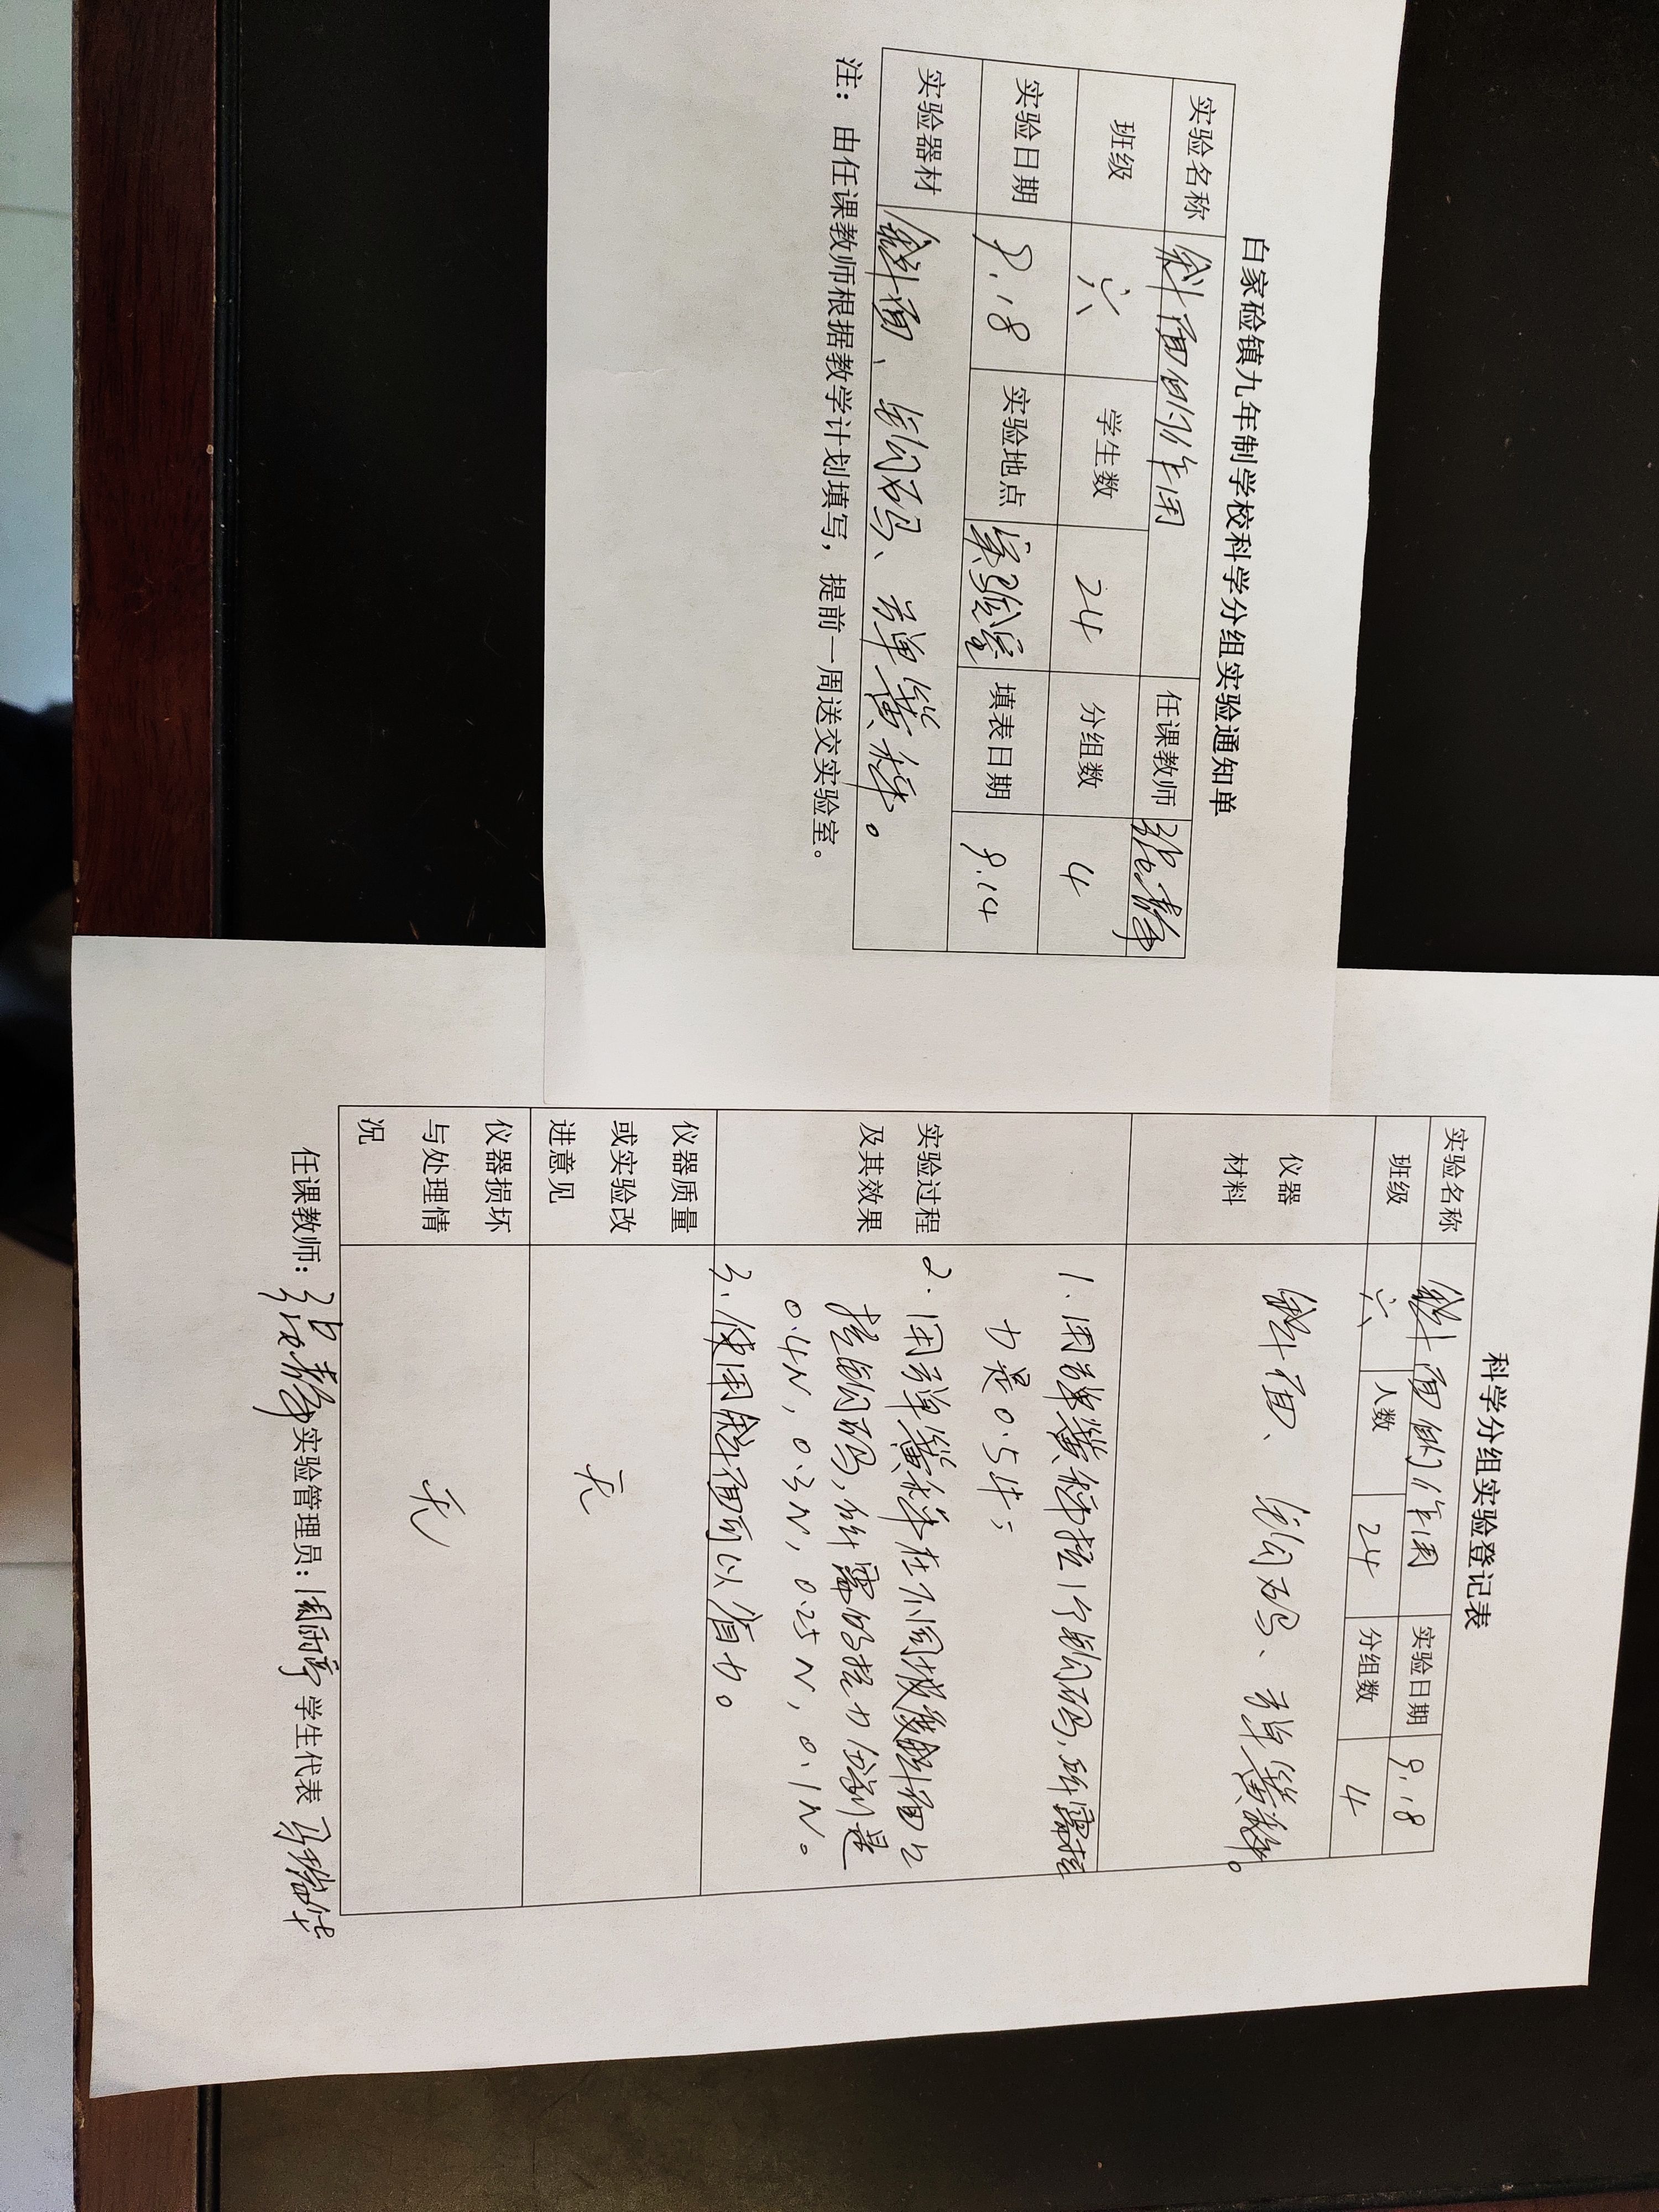 白家硷镇九年制学校科学分组实验通知单
实验名称 斜面的作用 任课教师 张静
班级 六 学生数 24 分组数 4
实验日期 9.18 实验地点 实验室 填表日期 9.14
实验器材 斜面、钩码、弹簧秤。
注：由任课教师根据教学计划填写，提前一周送交实验室。
科学分组实验登记表
实验名称 斜面的作用 实验日期 9.18
班级 六 人数 24 分组数 4
仪器
材料
斜面、钩码、弹簧秤。
实验过程
及其效果
1.用弹簧秤拉1个钩码，所需拉
力是0.5牛；
2.用弹簧秤在不同坡度斜面上
拉钩码，所需的拉力分别是
0.4N，0.3N，0.25N，0.1N。
3.使用斜面可以省力。
仪器质量
或实验改
进意见
无
仪器损坏
与处理情
况
无
任课教师：张静 实验管理员： 学生代表